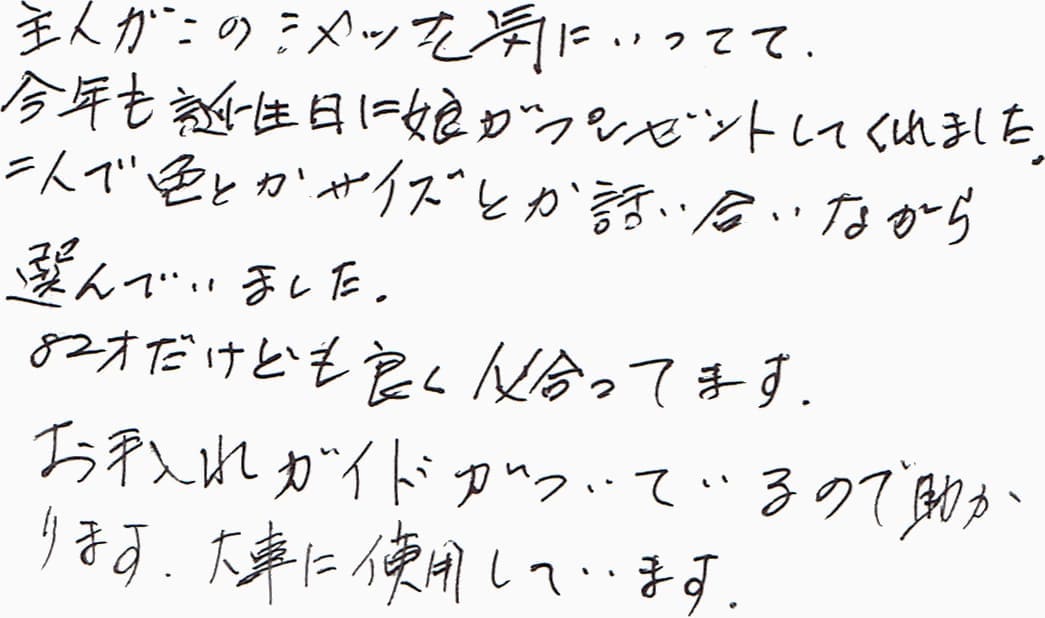 主人がこのシャツを気にいってて.
今年も誕生日に娘がプレゼントしてくれました.
二人で色とかサイズとか話い合いながら
選んでいました.
82才だけども良く似合ってます.
お手入れガイドがついているので助か
ります. 大事に使用しています.